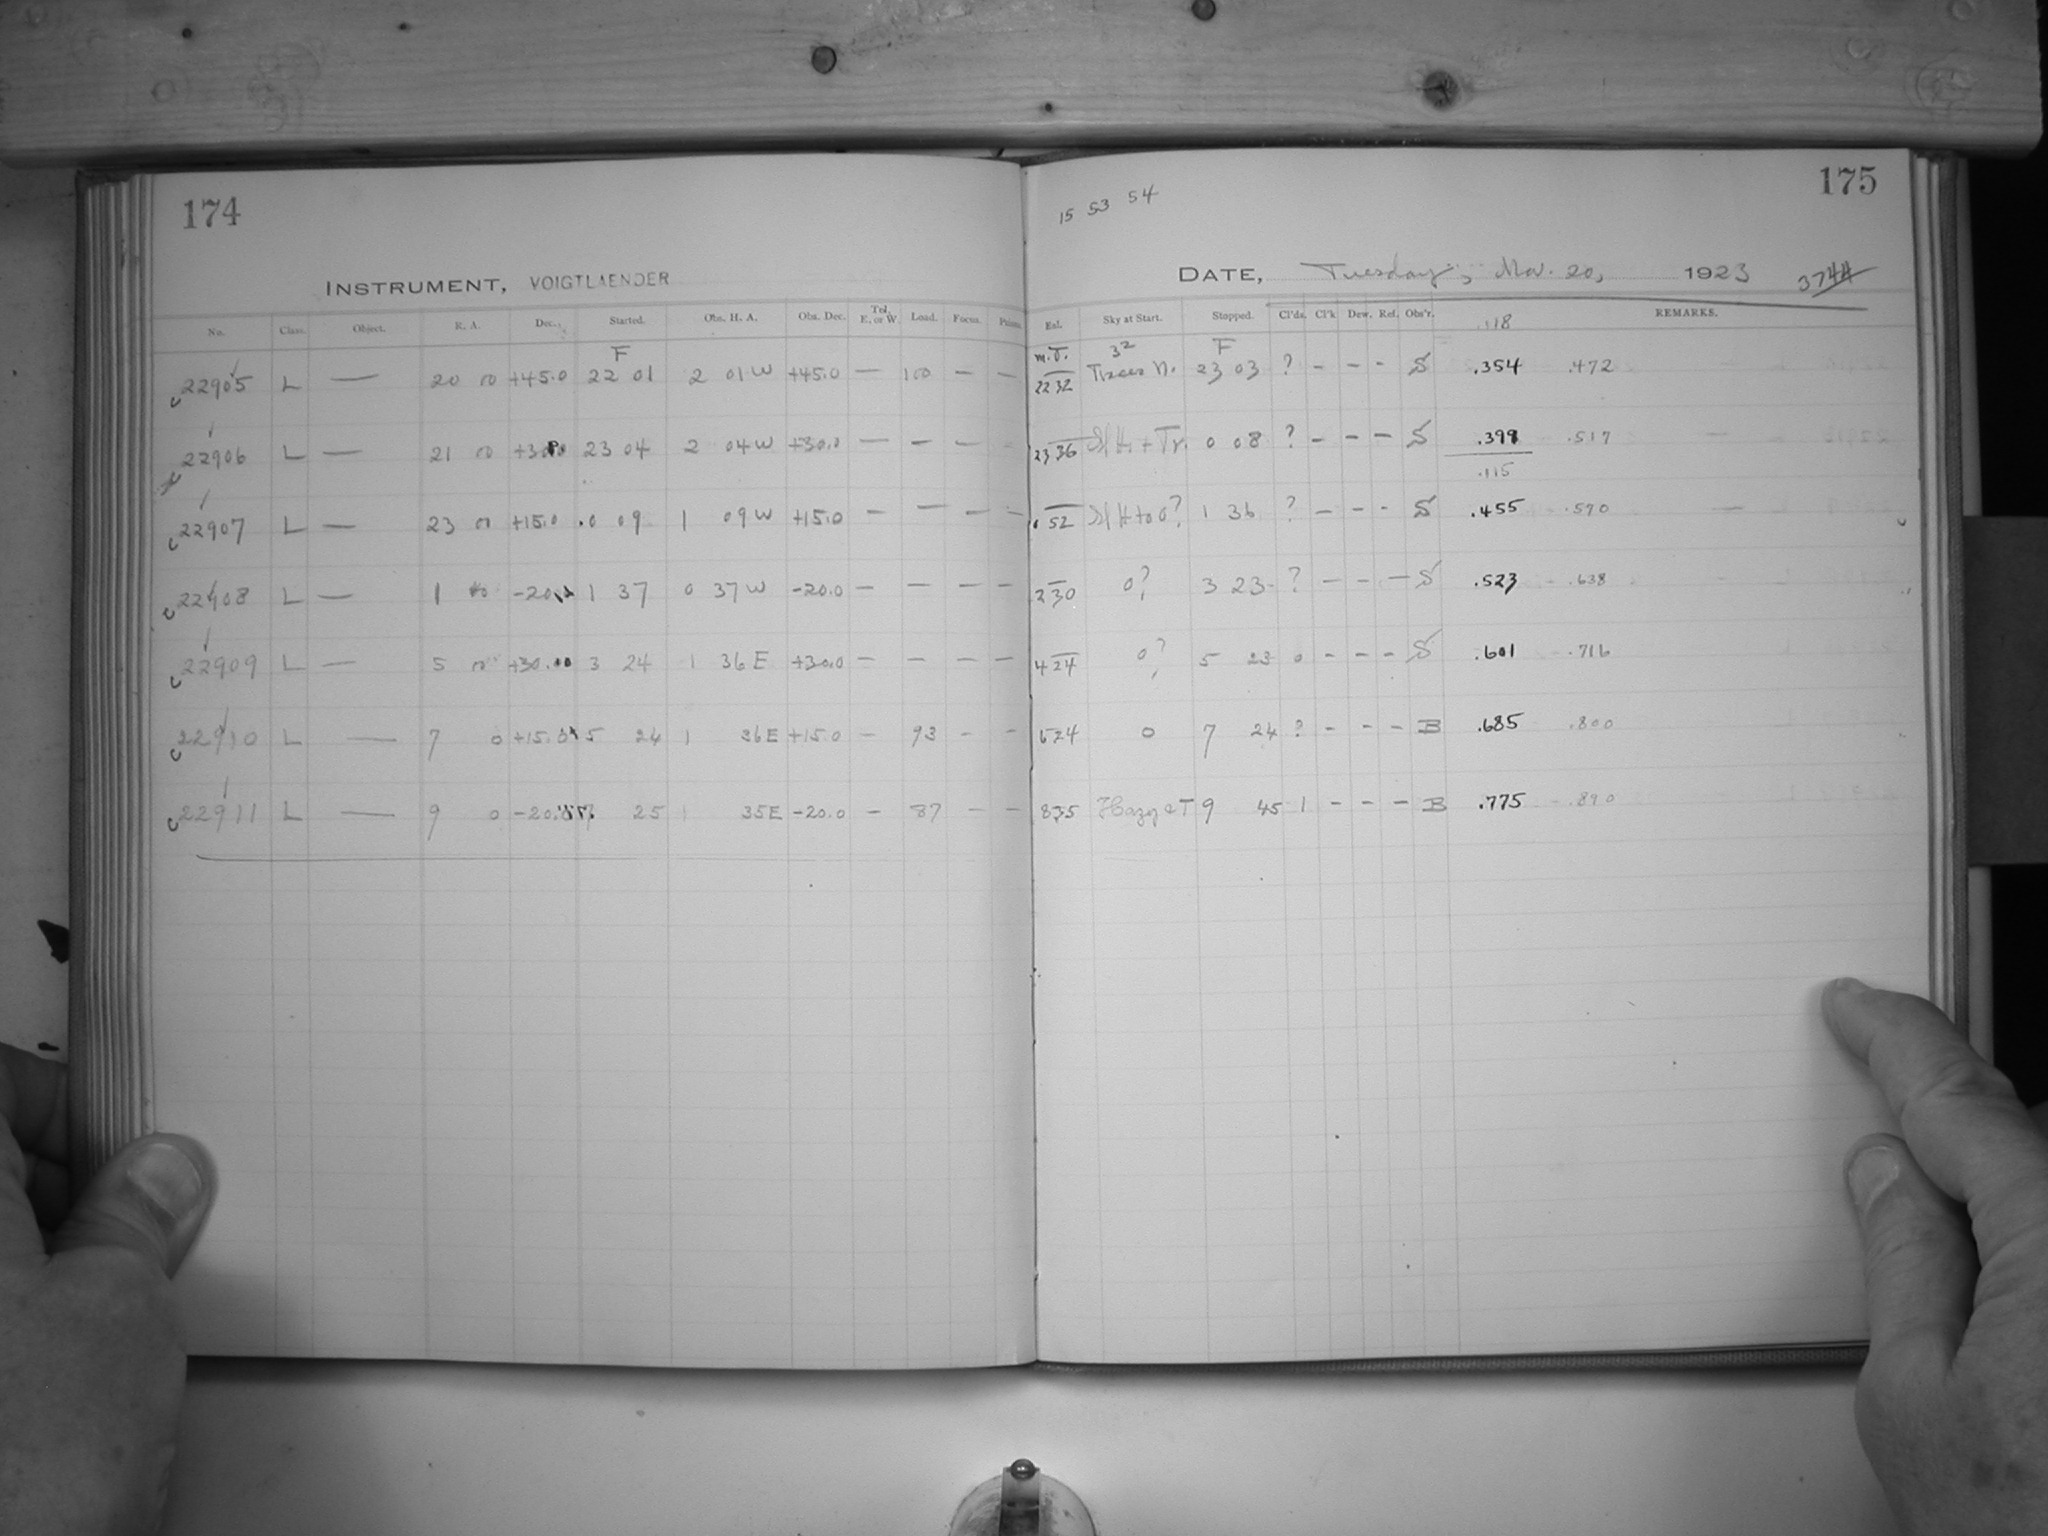 174
INSTRUMENT, VOIGTLAENDER
No. Class. Object. R. A. Dec. Started. Obs. H. A. Obs. Dec. Tel. E. or W. Load. Focus.
F
22905 L — 20 00 +45.0 22 01 2 01 W +45.0 — 100 — —
22906 L — 21 00 23 04 2 04 W +30.0 — —
22907 L — 23 00 +15.0 0 09 1 09 W +15.0 — — — —
22908 L — 1 -20 1 37 0 37 W -20.0 — — — —
22909 L — 5 00 +30.0 3 24 1 36 E +30.0 — — — —
22910 L — 7 0 +15.0 5 24 1 36 E +15.0 — 93 — —
22911 L — 9 0 -20. 7 25 1 35 E -20.0 — 87 — —
175
15 53 54
DATE, Tuesday, Nov. 20, 1923 3744
Exl. Sky at Start. Stopped. Cl'ds. Cl'k Dew. Ref. Obs'r. REMARKS.
.118
M.T. 32 F
22 32 Traces N. 23 03 ? - - - S .354 .472
23 36 Sl H + Tr. 0 08 ? - - - S .399 .517
.115
0 52 Sl H to 0? 1 36 ? - - - S .455 .570 —
2 30 0? 3 23 ? - - - S .523 .638
4 24 0? 5 23 0 - - - S .601 .716
624 0 7 24 ? - - - B .685 .800
835 Hazy & T 9 45 1 - - - B .775 .890